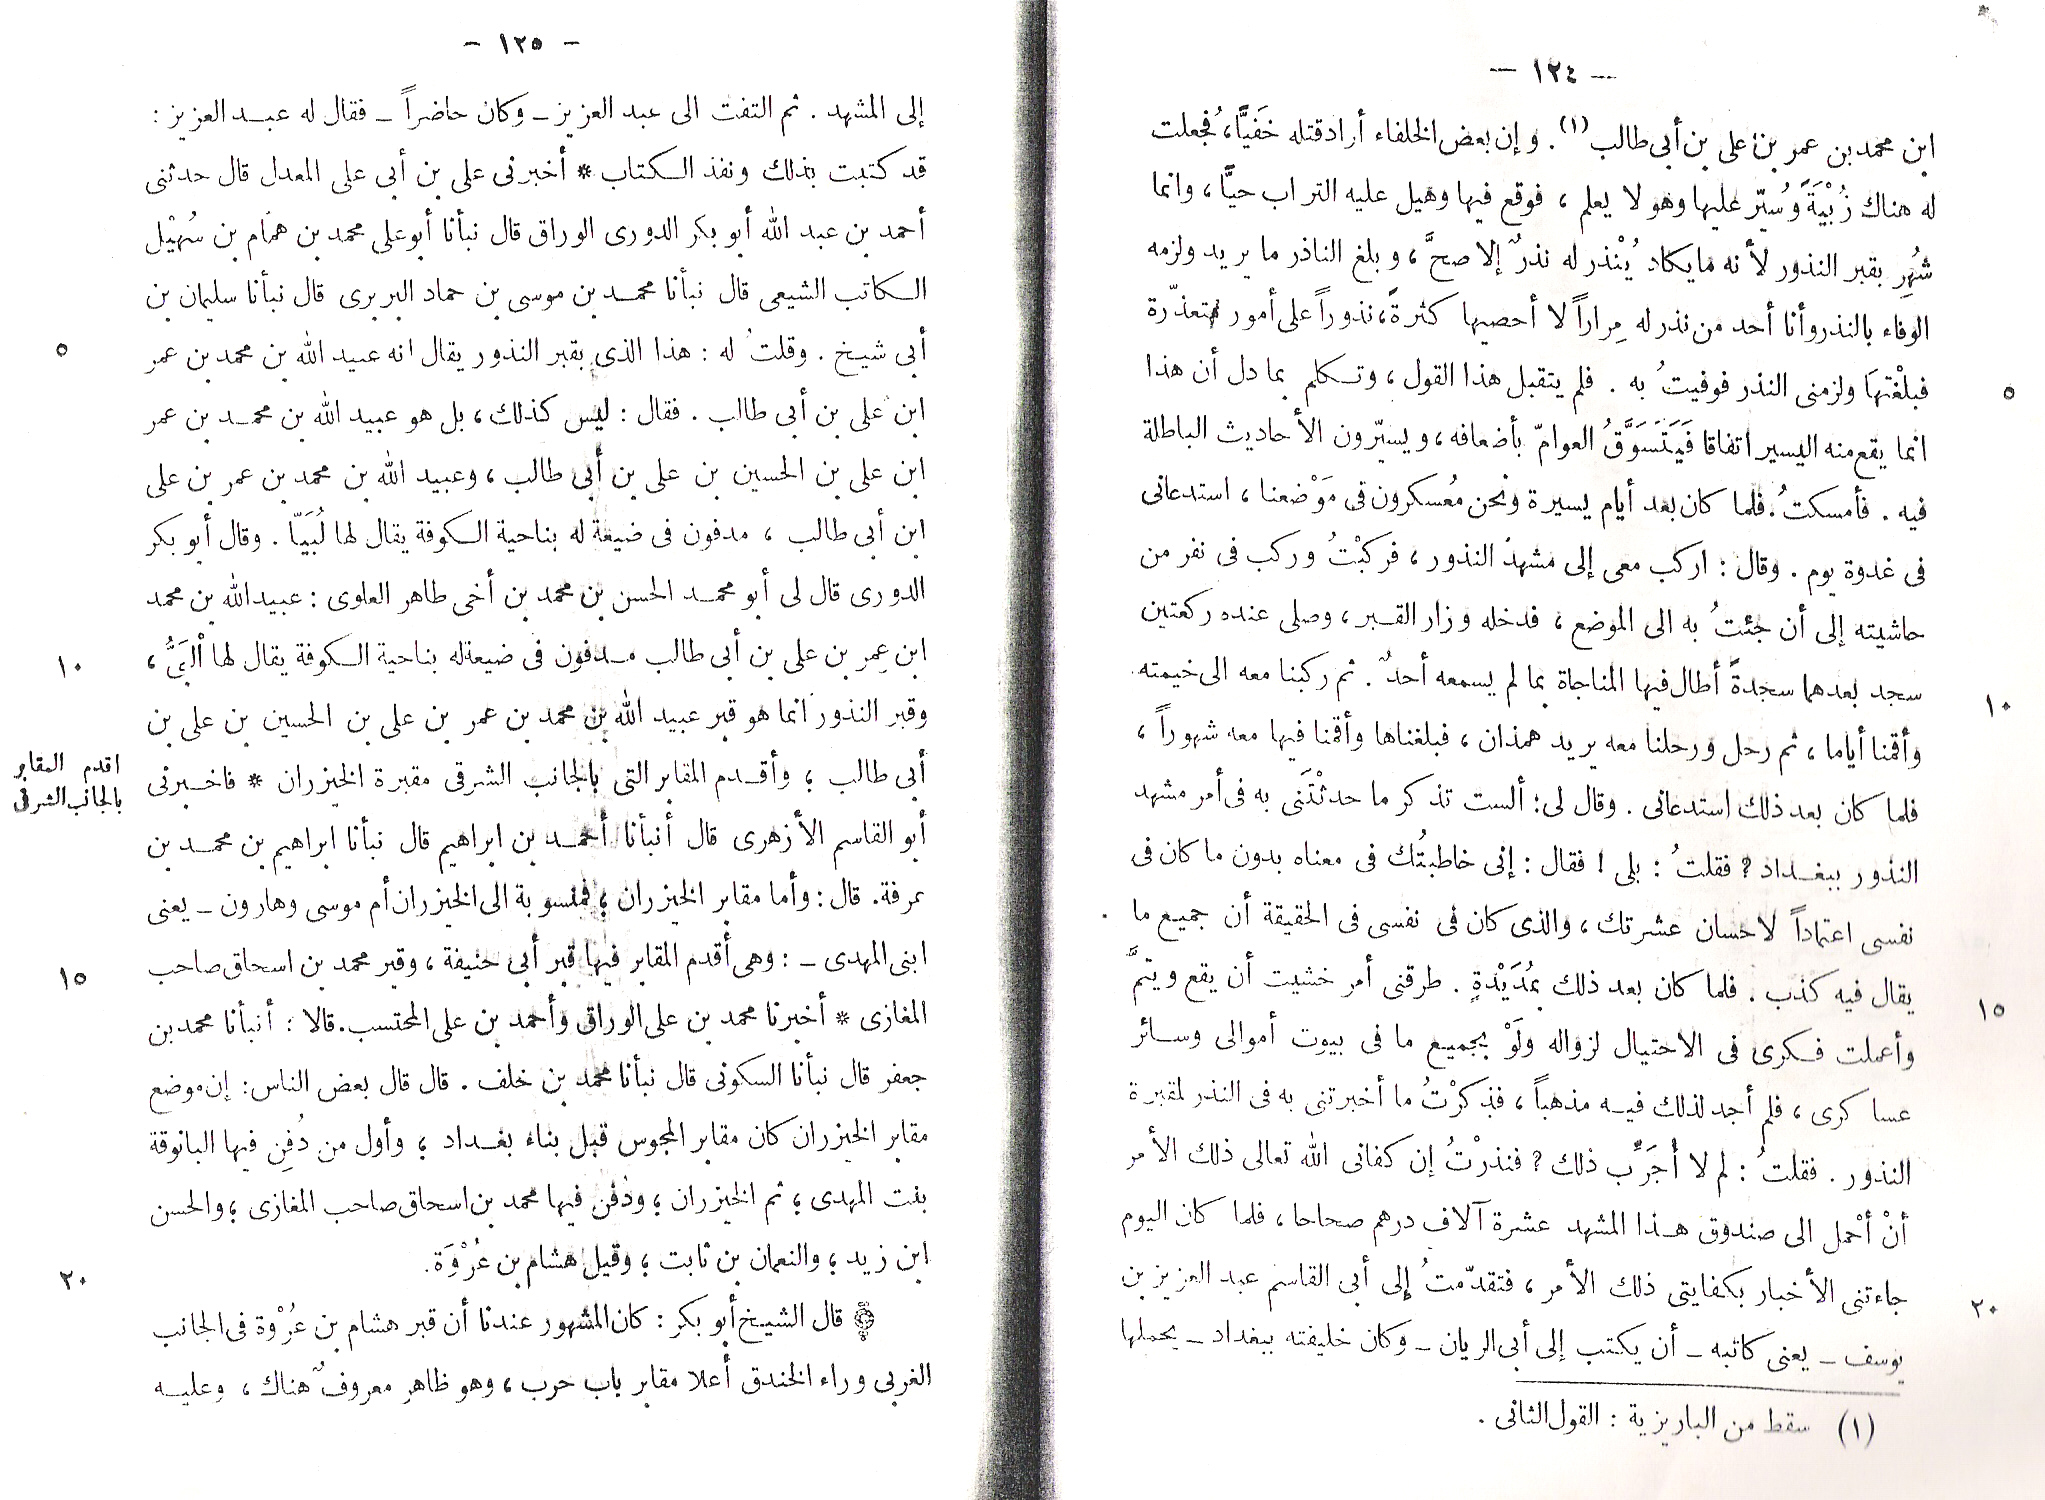 — ١٢٤ —
ابن محمد بن عمر بن على بن أبى طالب (١) . وإن بعض الخلفاء أراد قتله خَفيًّا ، فجعلت
له هناك زُبْيَةً وسُيِّر عليها وهو لا يعلم ، فوقع فيها وهيل عليه التراب حيًّا ، وانما
شُهِر بقبر النذور لأنه ما يكاد يُنْذر له نذرٌ إلا صحَّ ، وبلغ الناذر ما يريد ولزمه
الوفاء بالنذر وأنا أحد من نذر له مِراراً لا أحصيها كثرةً ، نذوراً على أمور متعذّرة
٥
فبلغْتها ولزمنى النذر فوفيتُ به . فلم يتقبل هذا القول ، وتكلم بما دل أن هذا
انما يقع منه اليسير اتفاقا فَيَتَسَوَّقُ العوامّ بأضعافه ، ويسيّرون الأحاديث الباطلة
فيه . فأمسكتُ . فلما كان بعد أيام يسيرة ونحن مُعسكرون فى مَوْضعنا ، استدعانى
فى غدوة يوم . وقال : اركب معى إلى مشهد النذور ، فركبْتُ وركب فى نفر من
حاشيته إلى أن جئتُ به الى الموضع ، فدخله وزار القبر ، وصلى عنده ركعتين
١٠
سجد بعدهما سجدةً أطال فيها المناجاة بما لم يسمعه أحدٌ . ثم ركبنا معه الى خيمته
وأقمنا أياما ، ثم رحل ورحلنا معه يريد همذان ، فبلغناها وأقمنا فيها معه شهوراً ،
فلما كان بعد ذلك استدعانى . وقال لى : ألست تذكر ما حدثْتَنى به فى أمر مشهد
النذور ببغداد ؟ فقلتُ : بلى ! فقال : إنى خاطبتُك فى معناه بدون ما كان فى
نفسى اعتماداً لاحسان عشرتك ، والذى كان فى نفسى فى الحقيقة أن جميع ما
١٥
يقال فيه كذب . فلما كان بعد ذلك بمُدَيْدةٍ . طرقنى أمر خشيت أن يقع ويتمَّ
وأعملت فكرى فى الاحتيال لزواله ولَوْ بجميع ما فى بيوت أموالى وسائر
عساكرى ، فلم أجد لذلك فيه مذهباً ، فذكرْتُ ما أخبرتنى به فى النذر لمقبرة
النذور . فقلتُ : لم لا أُجَرِّب ذلك ؟ فنذرْتُ إن كفانى الله تعالى ذلك الأمر
أنْ أحْمل الى صندوق هذا المشهد عشرة آلاف درهم صحاحا ، فلما كان اليوم
٢٠
جاءتنى الأخبار بكفايتى ذلك الأمر ، فتقدّمتُ إلى أبى القاسم عبد العزيز بن
يوسف ــ يعنى كاتبه ــ أن يكتب إلى أبى الريان ــ وكان خليفته ببغداد ــ يحملها
(١) سقط من الباريزية : القول الثانى .
— ١٢٥ —
إلى المشهد . ثم التفت الى عبد العزيز ــ وكان حاضراً ــ فقال له عبد العزيز :
قد كتبت بذلك ونفذ الكتاب * أخبرنى على بن أبى على المعدل قال حدثنى
أحمد بن عبد الله أبو بكر الدورى الوراق قال نبأنا أبو على محمد بن همام بن سُهيْل
الكاتب الشيعى قال نبأنا محمد بن موسى بن حماد البربرى قال نبأنا سليمان بن
٥
أبى شيخ . وقلتُ له : هذا الذى بقبر النذور يقال انه عبيد الله بن محمد بن عمر
ابن على بن أبى طالب . فقال : ليس كذلك ، بل هو عبيد الله بن محمد بن عمر
ابن على بن الحسين بن على بن أبى طالب ، وعبيد الله بن محمد بن عمر بن على
ابن أبى طالب ، مدفون فى ضيعة له بناحية الكوفة يقال لها لُبَيّا . وقال أبو بكر
الدورى قال لى أبو محمد الحسن بن محمد بن أخى طاهر العلوى : عبيد الله بن محمد
١٠
ابن عمر بن على بن أبى طالب مدفون فى ضيعة له بناحية الكوفة يقال لها ألبَىُّ ،
وقبر النذور انما هو قبر عبيد الله بن محمد بن عمر بن على بن الحسين بن على بن
أبى طالب ، وأقدم المقابر التى بالجانب الشرقى مقبرة الخيزران * فاخبرنى
اقدم المقابر
بالجانب الشرقى
أبو القاسم الأزهرى قال أنبأنا أحمد بن ابراهيم قال نبأنا ابراهيم بن محمد بن
عرفة . قال : وأما مقابر الخيزران ، فمنسوبة الى الخيزران أم موسى وهارون ــ يعنى
١٥
ابنى المهدى ــ : وهى أقدم المقابر فيها قبر أبى حنيفة ، وقبر محمد بن اسحاق صاحب
المغازى * أخبرنا محمد بن على الوراق وأحمد بن على المحتسب . قالا : أنبأنا محمد بن
جعفر قال نبأنا السكونى قال نبأنا محمد بن خلف . قال قال بعض الناس : إن موضع
مقابر الخيزران كان مقابر المجوس قبل بناء بغداد ، وأول من دُفِن فيها البانوقة
بنت المهدى ، ثم الخيزران ، ودُفن فيها محمد بن اسحاق صاحب المغازى ، والحسن
٢٠
ابن زيد ، والنعمان بن ثابت ، وقيل هشام بن عُرْوَة .
قال الشيخ أبو بكر : كان المشهور عندنا أن قبر هشام بن عُرْوة فى الجانب
الغربى وراء الخندق أعلا مقابر باب حرب ، وهو ظاهر معروفٌ هناك ، وعليه